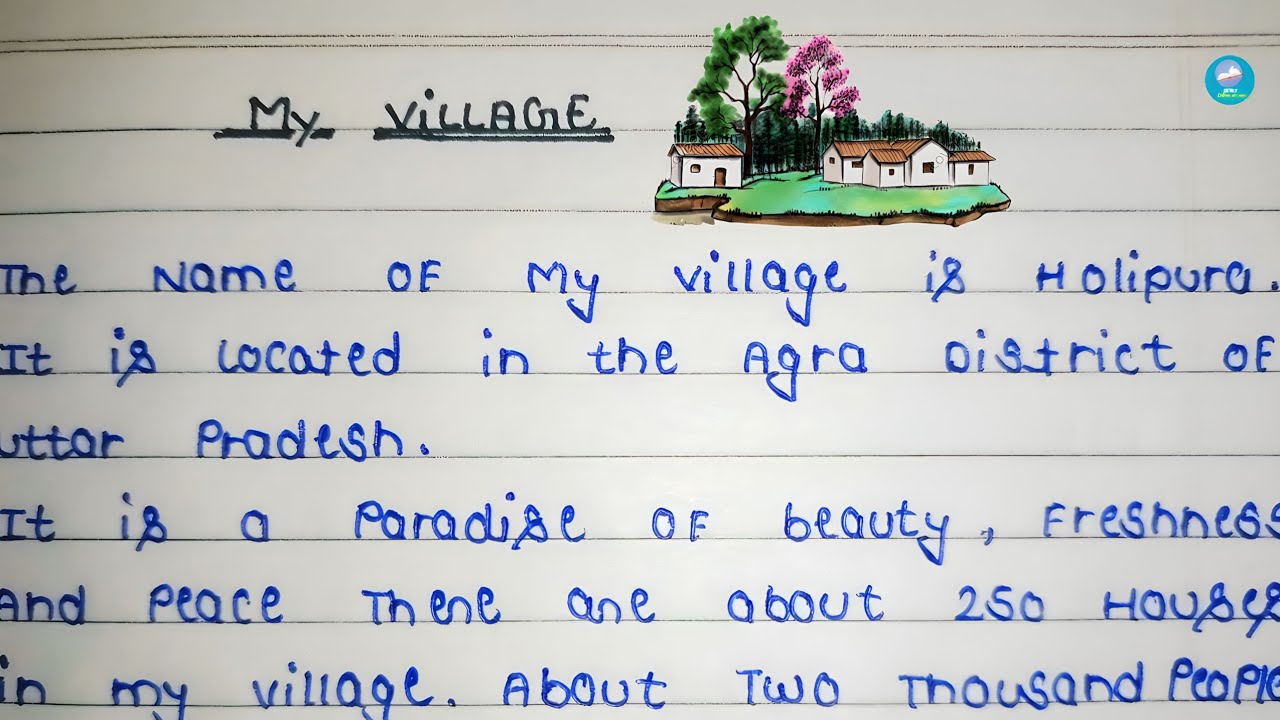 My VILLAGE
The Name OF My village is Holipura.
It is Located in the Agra District OF
Uttar Pradesh.
It is a Paradise OF beauty, Freshness
And Peace There are about 250 Houses
in my village. About Two Thousand People